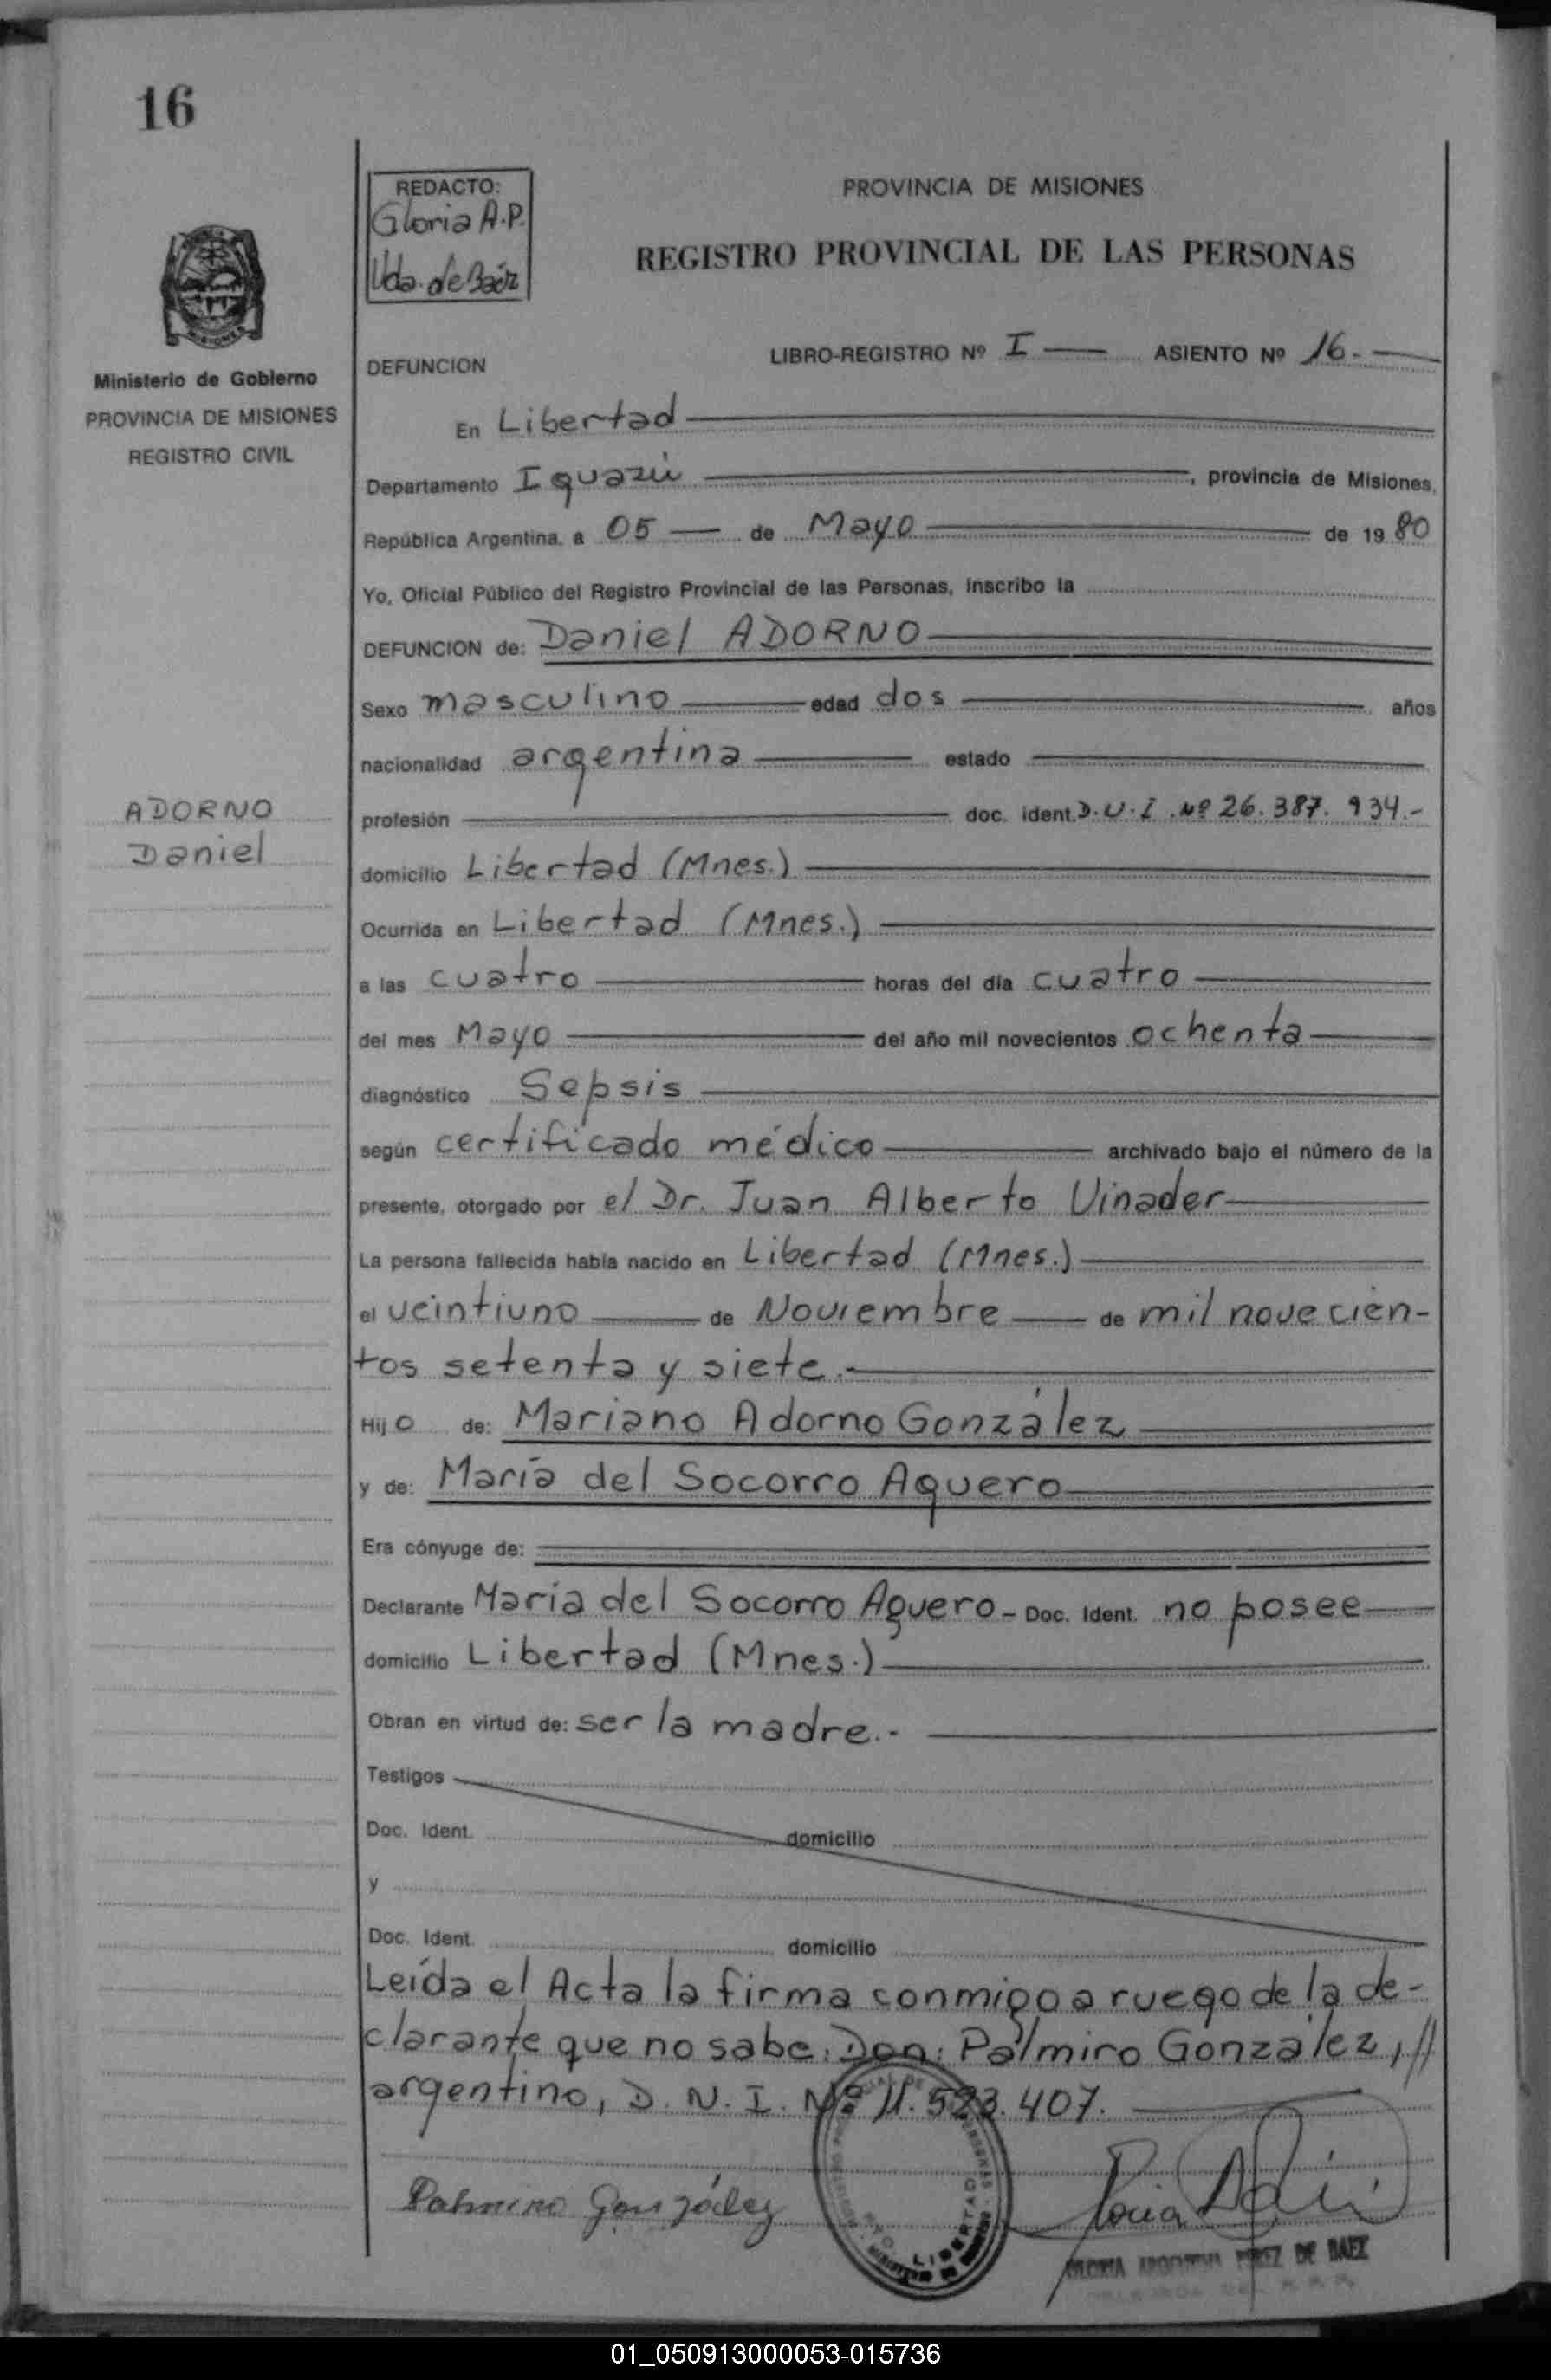 16
REDACTO:
Gloria A.P.
Vda. de Báez
PROVINCIA DE MISIONES
REGISTRO PROVINCIAL DE LAS PERSONAS
MISIONES
Ministerio de Gobierno
PROVINCIA DE MISIONES
REGISTRO CIVIL
DEFUNCION
LIBRO-REGISTRO Nº I — ASIENTO Nº 16.-
En Libertad
Departamento Iguazú , provincia de Misiones,
República Argentina, a 05 — de Mayo de 1980
Yo, Oficial Público del Registro Provincial de las Personas, inscribo la
DEFUNCION de: Daniel ADORNO
Sexo masculino edad dos años
nacionalidad argentina estado
ADORNO
Daniel
profesión doc. ident. D.U.I. Nº 26.387.934.-
domicilio Libertad (Mnes.)
Ocurrida en Libertad (Mnes.)
a las cuatro horas del día cuatro
del mes Mayo del año mil novecientos ochenta
diagnóstico Sepsis
según certificado médico archivado bajo el número de la
presente, otorgado por el Dr. Juan Alberto Vinader
La persona fallecida había nacido en Libertad (Mnes.)
el veintiuno de Noviembre de mil novecien-
tos setenta y siete.-
Hijo de: Mariano Adorno González
y de: María del Socorro Aguero
Era cónyuge de:
Declarante María del Socorro Aguero - Doc. Ident. no posee
domicilio Libertad (Mnes.)
Obran en virtud de: ser la madre.-
Testigos
Doc. Ident. domicilio
y
Doc. Ident. domicilio
Leída el Acta la firma conmigo a ruego de la de-
clarante que no sabe: Don: Palmiro González, //
argentino, D.N.I. Nº 11.523.407.
Palmiro González
LIBERTAD
GLORIA PEREZ DE BAEZ
01_050913000053-015736